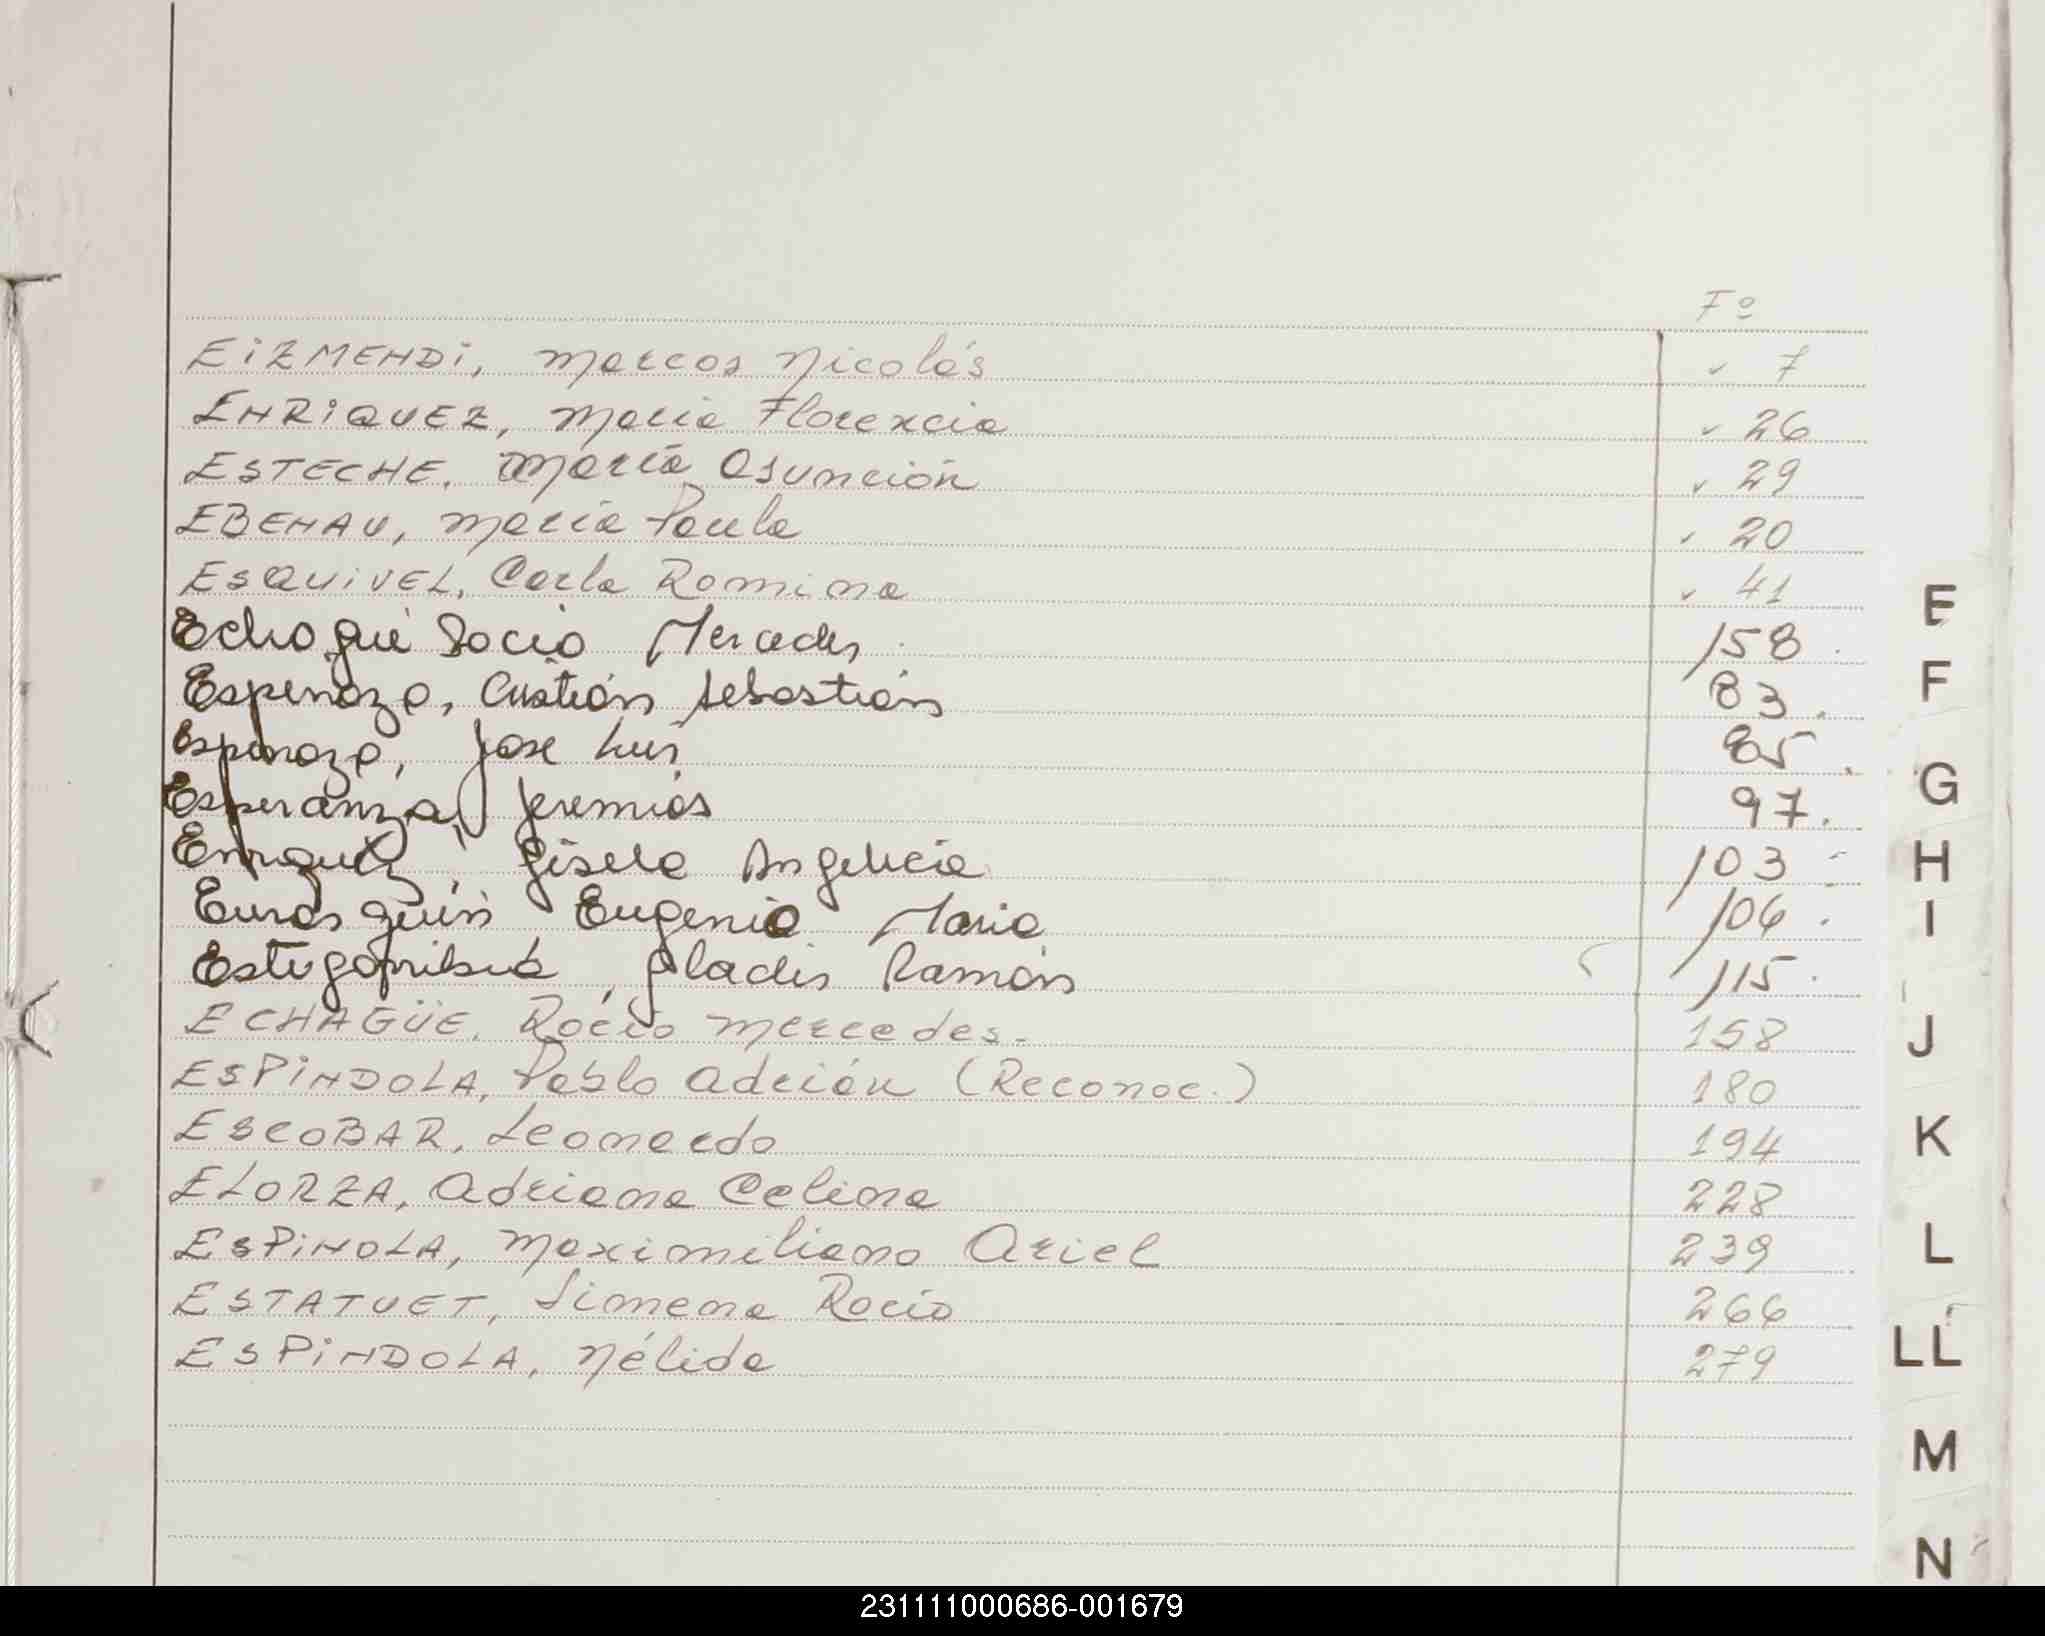 Fº
EIZMENDI, Marcos Nicolás ✓ 7
ENRIQUEZ, María Florencia ✓ 26
ESTECHE, María Asunción ✓ 29
EBENAU, María Paula ✓ 20
ESQUIVEL, Carla Romina ✓ 41
Echagüe Rocio Mercedes 158
Espinoza, Cristián Sebastián 83
Espinoza, Jose Luis 85
Esperanza, Jeremías 97
Enriquez, Gisela Angelica 103
Eugenia Maria 106
Gladis Ramón 115
ECHAGÜE, Rocío Mercedes. 158
ESPINDOLA, Pablo Adrián (Reconoc.) 180
ESCOBAR, Leonardo 194
ELORZA, Adriana Celina 228
ESPINOLA, Maximiliano Ariel 239
ESTATUET, Jimena Rocío 266
ESPINDOLA, Nélida 279
E
F
G
H
I
J
K
L
LL
M
N
231111000686-001679